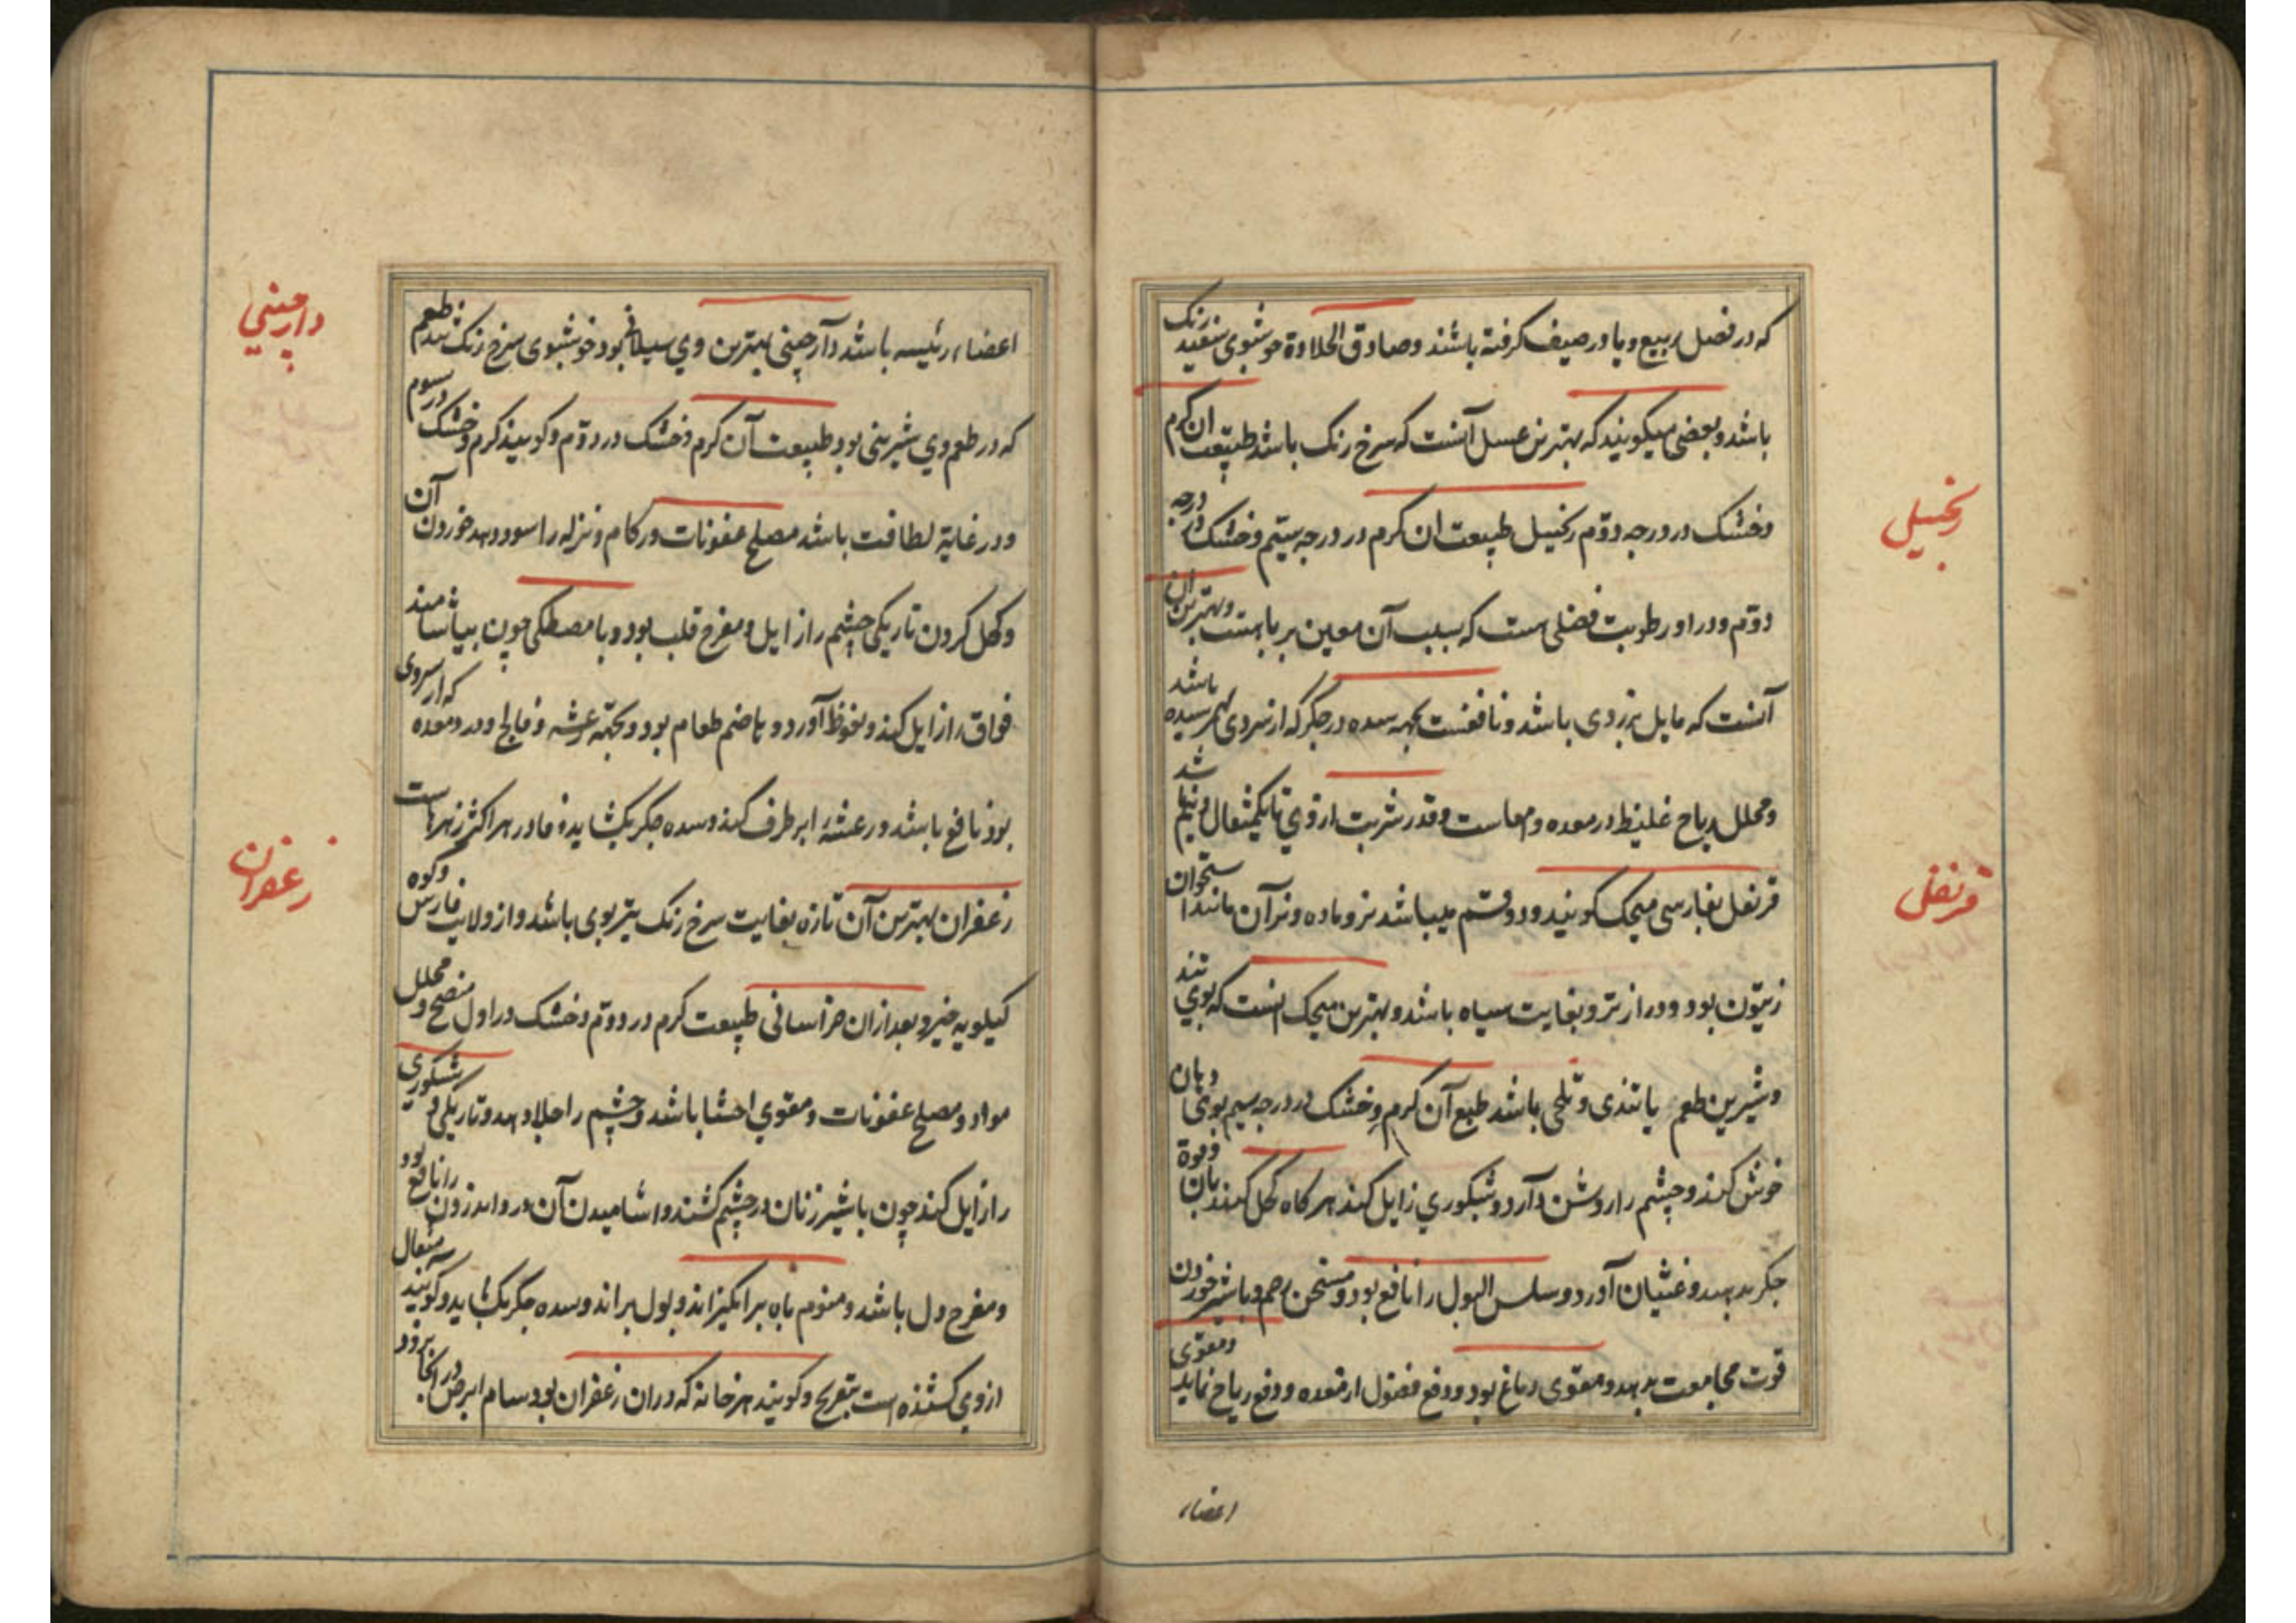 که در فصل ربیع و یا در صیف گرفته باشند و صادق الحلاوة خوشبوی سفید رنک
باشد و بعضی میکویند که بهترین عسل آنست که سرخ رنک باشد طبیعت ان کرم
وخشک در درجه دوّم زنجبیل طبیعت ان کرم در درجه سیّم وخشک در درجه
دوّم و در او رطوبت فضلی است که بسبب آن معین بر باهست و بهترین ان
آنست که مایل بزردی باشد و نافعست بجهه سده در جگر که از سردی بهم رسیده باشد
و محلل ریاح غلیظ در معده و امعاست و قدر شربت از وی تا یکمثقال و نیم شد
زنجبیل
قرنفل بفارسی میجک کویند و دو قسم میباشد نر و ماده و نر آن مانند استخوان
قرنفل
زیتون بود و دراز تر و بغایت سیاه باشد و بهترین میجک انست که بوی تند
و شیرین طعم با تندی و تلخی باشد طبع آن کرم وخشک در درجه سیم بوی دهان
خوش کند و چشم را روشن دارد و شبکوری زایل کند هر کاه کحل کنند بان و قوة
جکر بدهد و غثیان آورد و سلس البول را نافع بود و مسخن رحم و با شیر خوردن
قوت مجامعت بدهد و مقوی دماغ بود و دفع فضول از معده و دفع ریاح نماید و مقوی
اعضاء
اعضاء رئیسه باشد دارچینی بهترین وی سیلانی بود خوشبوی سرخ رنک تند طعم
دارچینی
که در طعم وی شیرینی بود طبیعت آن کرم وخشک در دوّم و کویند کرم وخشک در سوم
و در غایة لطافت باشد مصلح عفونات و زکام و نزله را سود دهد خوردن آن
و کحل کردن تاریکی چشم را زایل و مفرح قلب بود و با مصطکی چون بیاشامند
فواق را زایل کند و نعوظ آورد و هاضم طعام بود و بجهّه رعشه و فالج و درد معده که از سردی
بود نافع باشد و رعشه را برطرف کند و سده جکر بکشاید و فادزهر اکثر زهرهاست
زعفران بهترین آن تازه بغایت سرخ رنک تیز بوی باشد و از ولایت فارس و کوه
زعفران
کیلویه خیزد و بعد از ان خراسانی طبیعت کرم در دوّم وخشک در اول منضج و محلل
مواد و مصلح عفونات و مقوی احشا باشد و چشم را جلا دهد و تاریکی و شبکوری
را زایل کند چون با شیر زنان در چشم کشند و اشامیدن آن در زادن را نافع بود
و مفرح دل باشد و منوم باه برانکیزاند و بول براند و سده جکر بکشاید و کویند مثقال
از وی کشنده است بتفریح و کویند هر خانه که دران زعفران بود سام ابرص در آنجا نرود